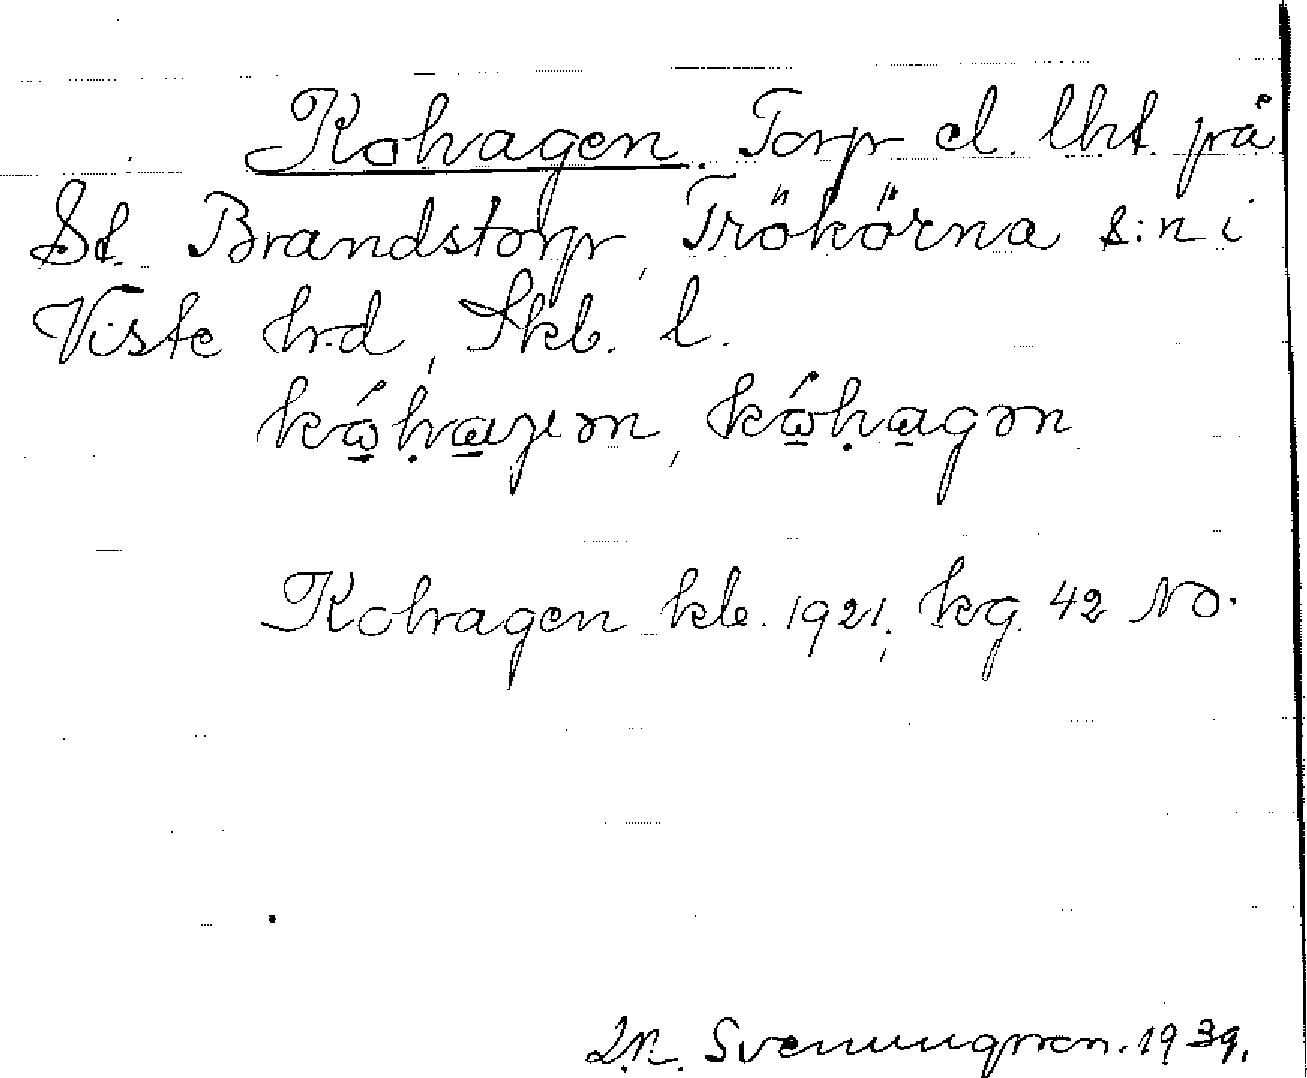 Kohagen. Torp el. lht. på
St. Brandstorp, Trökörna s:n i
Viste hrd, Skb. l.
kóhaɡən, kóhagən
Kohagen kb. 1921, kg. 42 NO.
Svenungsson. 1939.